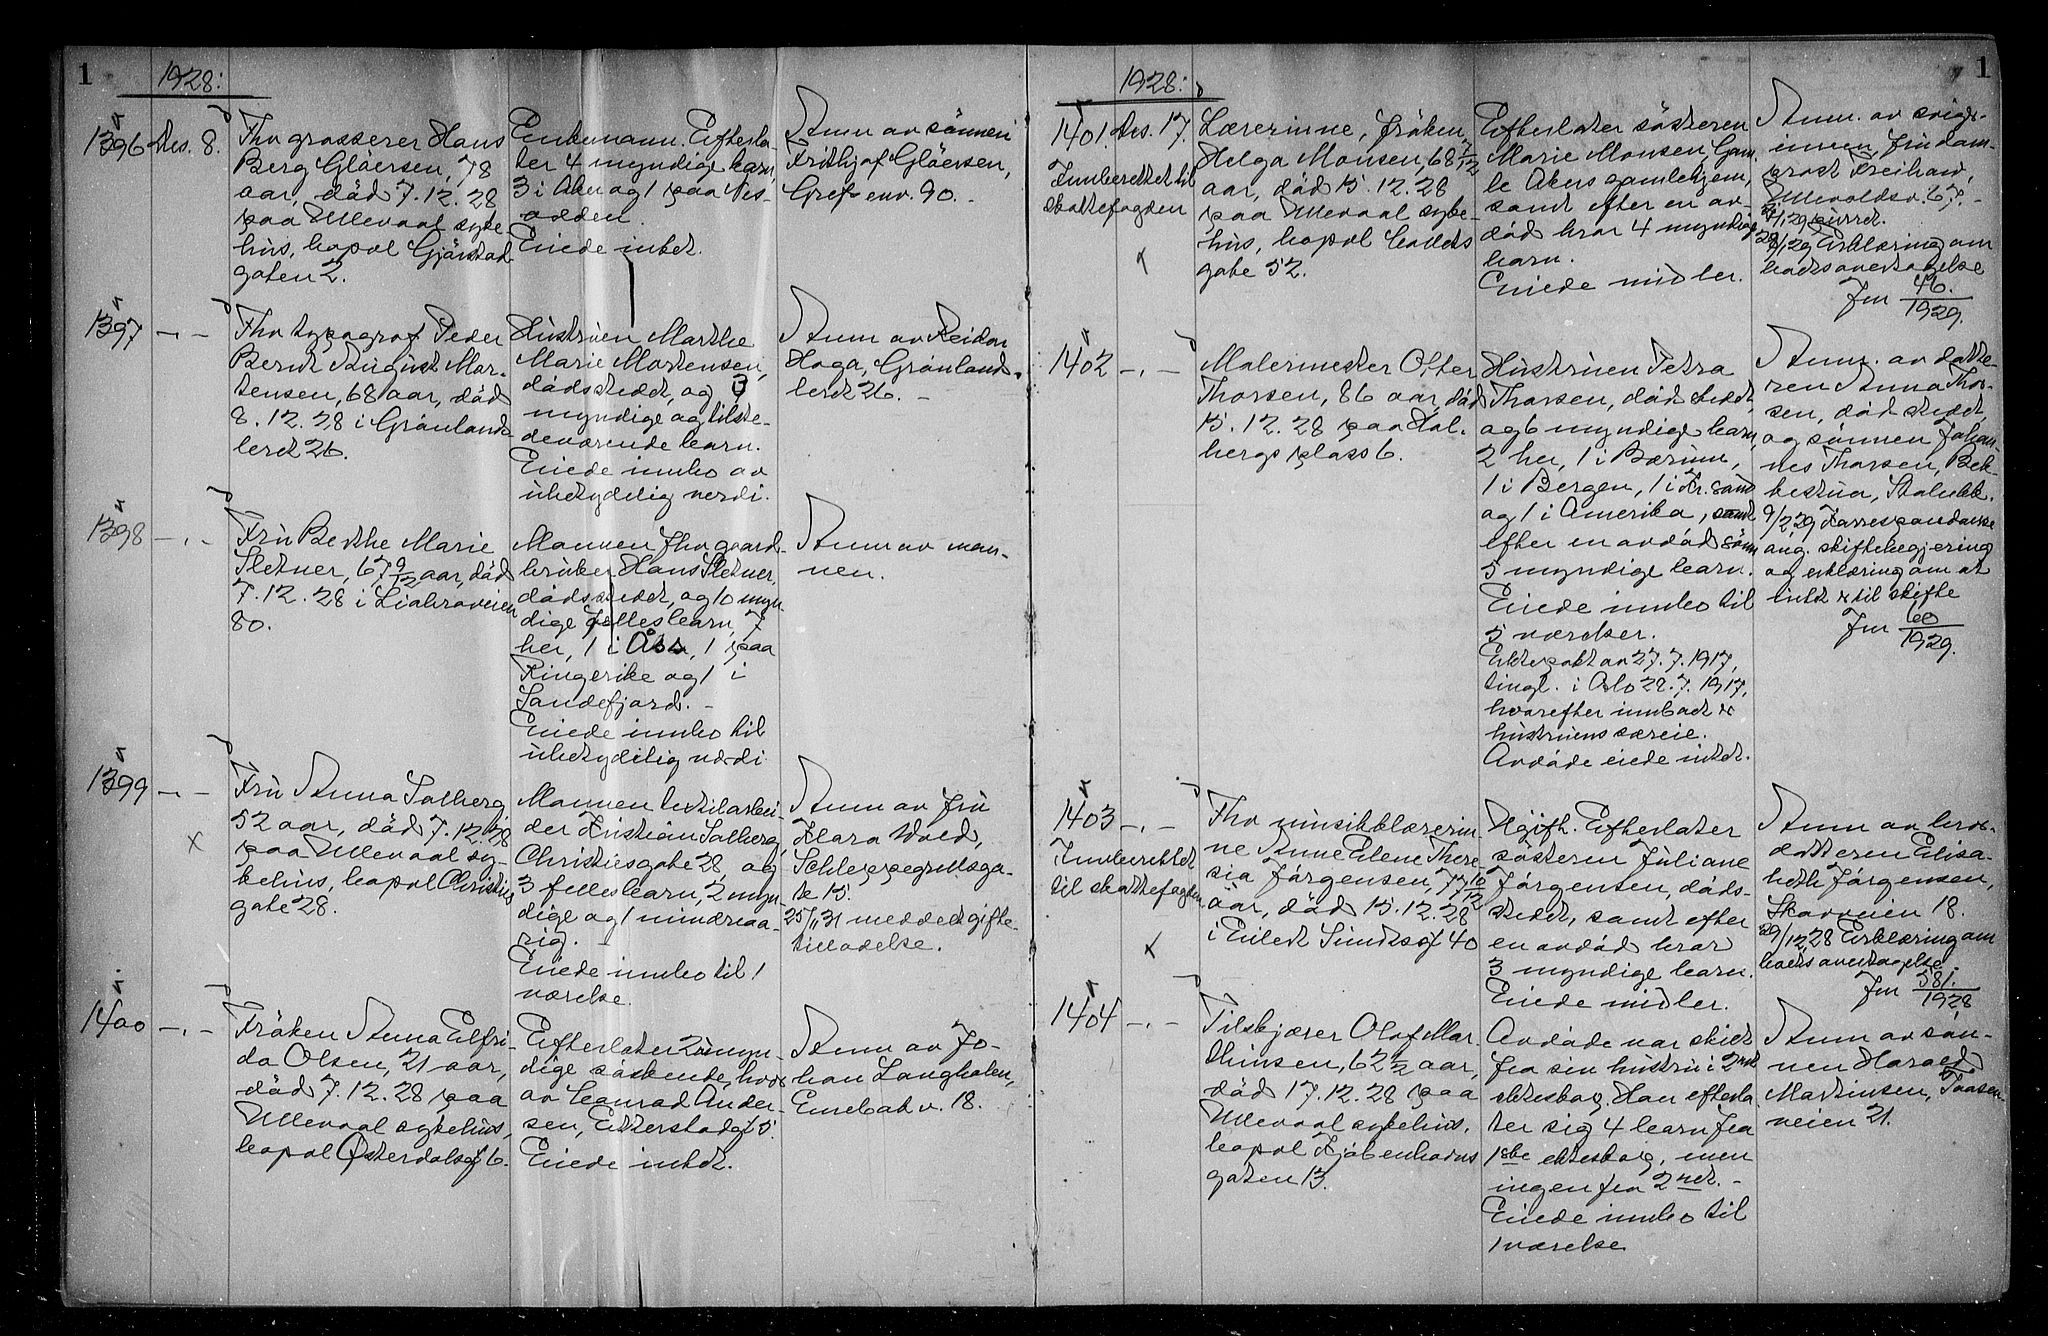 1
1928:
1396
Des. 8.
Fhv grosserer Hans
Berg Gläersen, 78
aar, død 7.12.28
paa Ullevaal syke
hus, bopæl Gjörstad
gaten 2.
Enkemann. Efterla-
ter 4 myndige barn,
3 i Aker og 1 paa Nes-
odden.
Eiede intet.
Anm av sönnen
Frithjof Gläersen,
Grefsenv. 90. -
1397
-"-
Fhv typograf Peder
Bernt August Mar-
tensen, 68 aar, död
8.12.28 i Grönlands
leret 26.
Hustruen Marthe
Marie Martensen,
dödsstedet, og 3
myndige og tilste-
deværende barn.
Eiede innbo av
ubetydelig verdi.
Anm av Reidar
Haga, Grönlands-
leret 26. -
1398
-"-
Fru Berthe Marie
Sletner, 67 9/12 aar, död
7.12.28 i Liabroveien
80.
Mannen fhv gaard-
bruker Hans Sletner,
dödsstedet, og 10 myn
dige felles barn, 7
her, 1 i Ås, 1 paa
Ringerike og 1 i
Sandefjord. -
Eiede innbo til
ubetydelig verdi
Anm av man-
nen.
1399
-"-
x
Fru Anna Solberg
52 aar, död 7.12.28
paa Ullevaal sy-
kehus, bopæl Christies
gate 28.
Mannen textilarbei-
der Kristian Solberg,
Christiesgate 28, og
3 felles barn, 2 myn
dige og 1 mindreaa-
rig. -
Eiede innbo til 1
værelse.
Anm av fru
Klara Wold,
Schleppegrellsga-
te 15.
25/1 31 meddelt gifte-
tilladelse.
1400
-"-
Fröken Anna Elfri-
da Olsen, 21 aar,
död 7.12.28 paa
Ullevaal sykehus,
bopæl Østerdalsgt 6.
Efterlater 2 umyn-
dige söskende, hos
av Conrad Ander-
sen, Etterstadgt 5.
Eiede intet.
Anm av Jo-
han Langholen,
Enebakv. 18.
1
1928:
1401
Des. 17.
Innberettet til
skattefogden
x
Lærerinne, fröken
Helga Monsen, 68 7/12
aar, död 15.12.28
paa Ullevaal syke-
hus, bopæl Colletts
gate 52.
Efterlater sösteren
Marie Monsen, Gam
le Akers gamlehjem,
samt efter en av-
död bror 4 myndige
barn.
Eiede midler.
Anm. av svige-
innen, fru dom-
prost Freihow,
Ullevoldsv. 67. -
4/1 29 purret.
29/1 29 Erklæring om
boets overtagelse
Jnr 46./1929.
1402
-"-
Malermester Otter
Thorsen, 86 aar, död
15.12.28 paa Hol-
bergs plass 6.
Hustruen Petra
Thorsen, dödsstedet,
og 6 myndige barn,
2 her, 1 i Bærum,
1 i Bergen, 1 i Kr.sand
og 1 i Amerika, samt
efter en avdöd sönn
5 myndige barn.
Eiede innbo til
5 værelser.
Ektepakt av 27.7.1917,
tingl. i Oslo 28.7.1917,
hvorefter innboet er
hustruens særeie.
Avdöde eiede intet.
Anm. av datte-
ren Anna Thor-
sen, dödsstedet,
og sönnen Johan-
nes Thorsen, Bek-
kestua, Stabekk.
9/2 29 Korrespondanse
ang. skiftebegjering
og erklæring om at
intet er til skifte
Jnr 60/1929.
1403
-"-
Innberettet
til skattefogden
x
Fhv musikklærerin
ne Anne Elene There
sia Jörgensen, 77 10/12
aar, död 15.12.28
i Eilert Sundtsgt 40
Ugift. Efterlater
sösteren Juliane
Jörgensen, döds-
stedet, samt efter
en avdöd bror
3 myndige barn.
Eiede midler.
Anm av bror-
datteren Elisa-
beth Jörgensen,
Skovveien 18.
29/12 28 Erklæring om
boets overtagelse
Jnr 581./1928
1404
-"-
Tilskjærer Olof Mar
thinsen, 62 1/2 aar,
död 17.12.28 paa
Ullevaal sykehus,
bopæl Kjöbenhavns
gaten 13.
Avdöde var skilt
fra sin hustru i 2net
ekteskap. Han efterla
ter sig 4 barn fra
1ste ekteskap, men
ingen fra 2net. -
Eiede innbo til
1 værelse
Anm av sön-
nen Harald
Martinsen, Taasen-
veien 21.